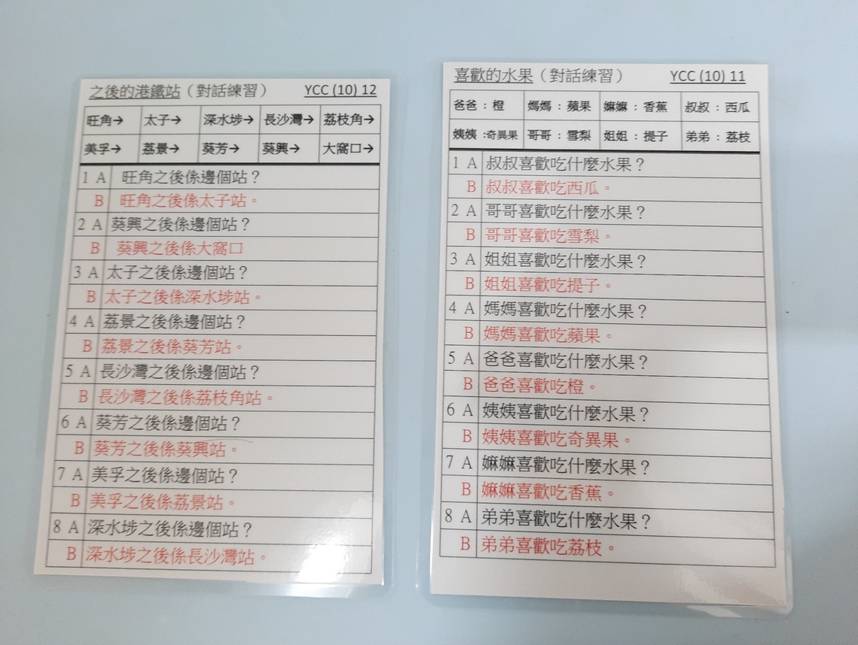 之後的港鐵站（對話練習） YCC (10) 12
旺角→ 太子→ 深水埗→ 長沙灣→ 荔枝角→
美孚→ 荔景→ 葵芳→ 葵興→ 大窩口→
1 A 旺角之後係邊個站？
B 旺角之後係太子站。
2 A 葵興之後係邊個站？
B 葵興之後係大窩口
3 A 太子之後係邊個站？
B 太子之後係深水埗站。
4 A 荔景之後係邊個站？
B 荔景之後係葵芳站。
5 A 長沙灣之後係邊個站？
B 長沙灣之後係荔枝角站。
6 A 葵芳之後係邊個站？
B 葵芳之後係葵興站。
7 A 美孚之後係邊個站？
B 美孚之後係荔景站。
8 A 深水埗之後係邊個站？
B 深水埗之後係長沙灣站。
喜歡的水果（對話練習） YCC (10) 11
爸爸：橙 媽媽：蘋果 嫲嫲：香蕉 叔叔：西瓜
姨姨:奇異果 哥哥：雪梨 姐姐：提子 弟弟：荔枝
1 A 叔叔喜歡吃什麼水果？
B 叔叔喜歡吃西瓜。
2 A 哥哥喜歡吃什麼水果？
B 哥哥喜歡吃雪梨。
3 A 姐姐喜歡吃什麼水果？
B 姐姐喜歡吃提子。
4 A 媽媽喜歡吃什麼水果？
B 媽媽喜歡吃蘋果。
5 A 爸爸喜歡吃什麼水果？
B 爸爸喜歡吃橙。
6 A 姨姨喜歡吃什麼水果？
B 姨姨喜歡吃奇異果。
7 A 嫲嫲喜歡吃什麼水果？
B 嫲嫲喜歡吃香蕉。
8 A 弟弟喜歡吃什麼水果？
B 弟弟喜歡吃荔枝。